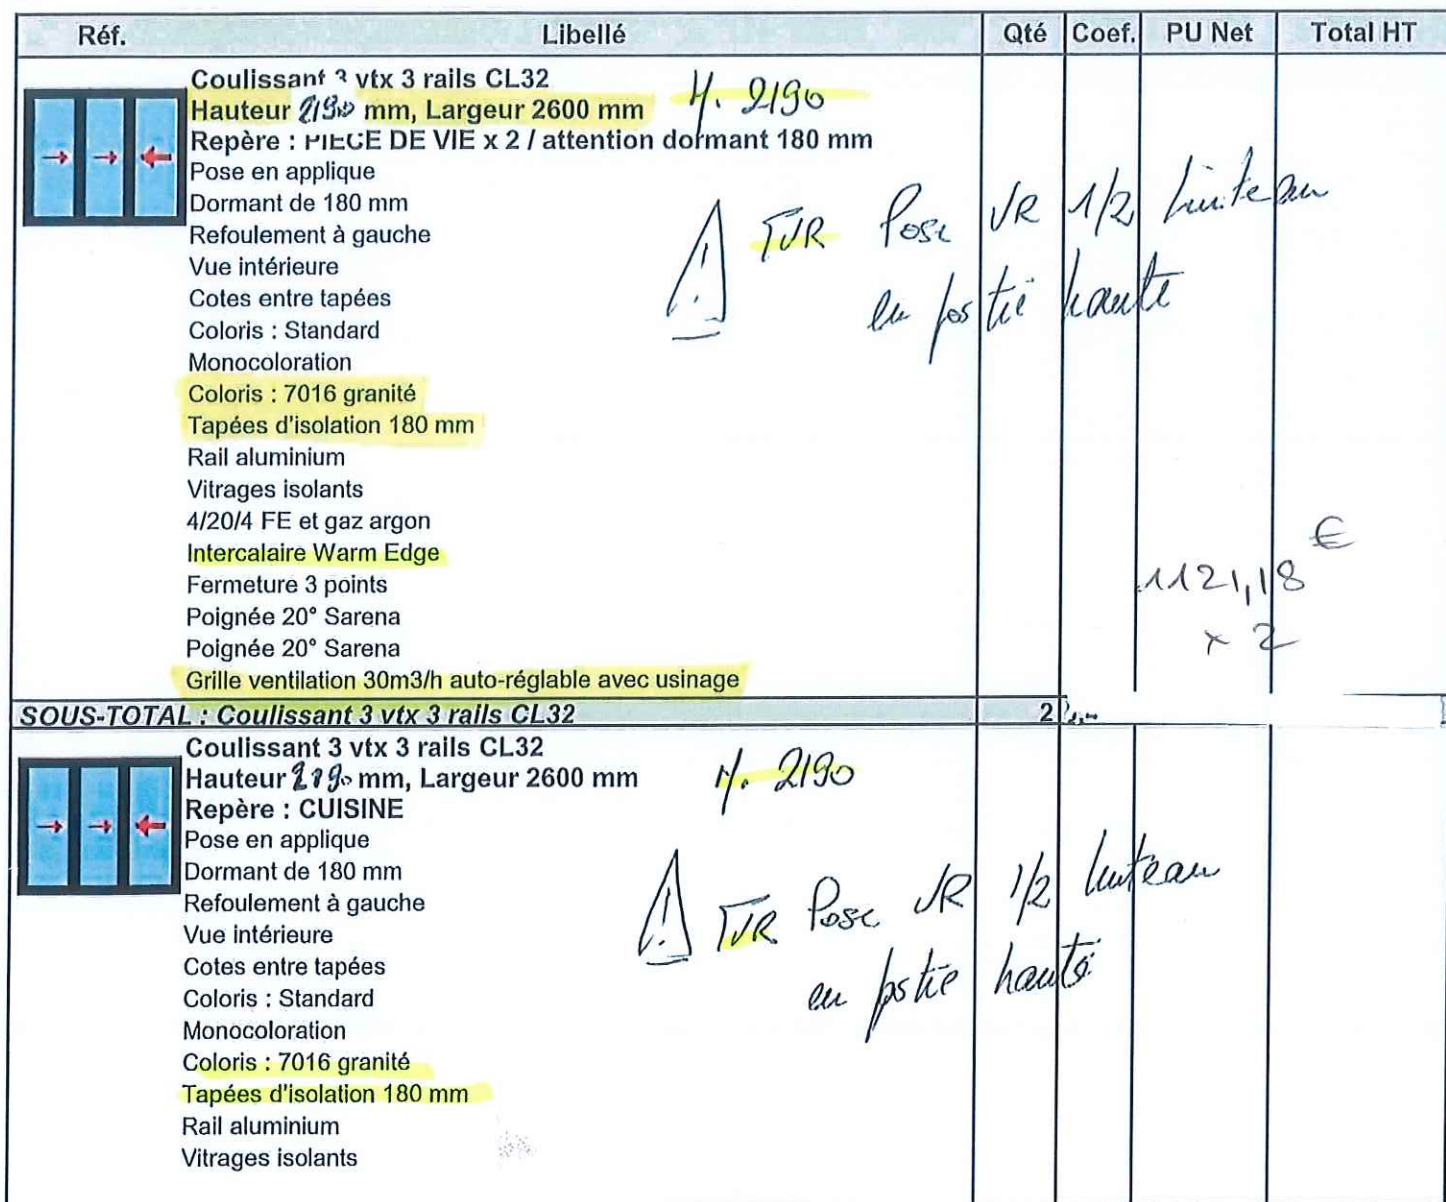 Réf. Libellé Qté Coef. PU Net Total HT
Coulissant 3 vtx 3 rails CL32
Hauteur 2190 mm, Largeur 2600 mm H. 2190
Repère : PIECE DE VIE x 2 / attention dormant 180 mm
Pose en applique
Dormant de 180 mm
Refoulement à gauche
Vue intérieure
Cotes entre tapées
Coloris : Standard
Monocoloration
Coloris : 7016 granité
Tapées d'isolation 180 mm
Rail aluminium
Vitrages isolants
4/20/4 FE et gaz argon
Intercalaire Warm Edge
Fermeture 3 points
Poignée 20° Sarena
Poignée 20° Sarena
Grille ventilation 30m3/h auto-réglable avec usinage
! TVR Pose VR 1/2 linteau
en partie haute
1121,18 €
x 2
SOUS-TOTAL : Coulissant 3 vtx 3 rails CL32 2
Coulissant 3 vtx 3 rails CL32
Hauteur 2190 mm, Largeur 2600 mm H. 2190
Repère : CUISINE
Pose en applique
Dormant de 180 mm
Refoulement à gauche
Vue intérieure
Cotes entre tapées
Coloris : Standard
Monocoloration
Coloris : 7016 granité
Tapées d'isolation 180 mm
Rail aluminium
Vitrages isolants
! TVR Pose VR 1/2 linteau
en partie haute